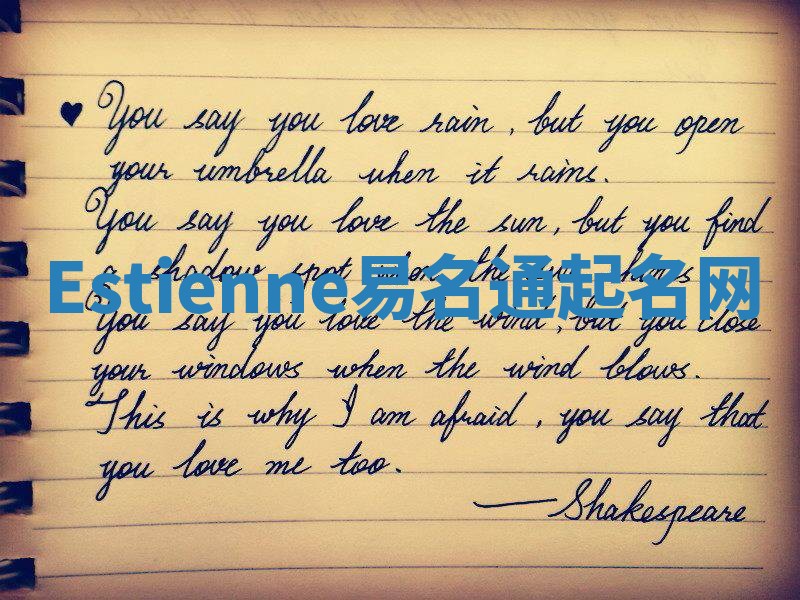 You say you love rain, but you open
your umbrella when it rains.
You say you love the sun, but you find
a shadow spot when the sun shines
Estienne易名通起名网
You say you love the wind, but you close
your windows when the wind blows.
This is why I am afraid, you say that
you love me too.
—Shakespeare